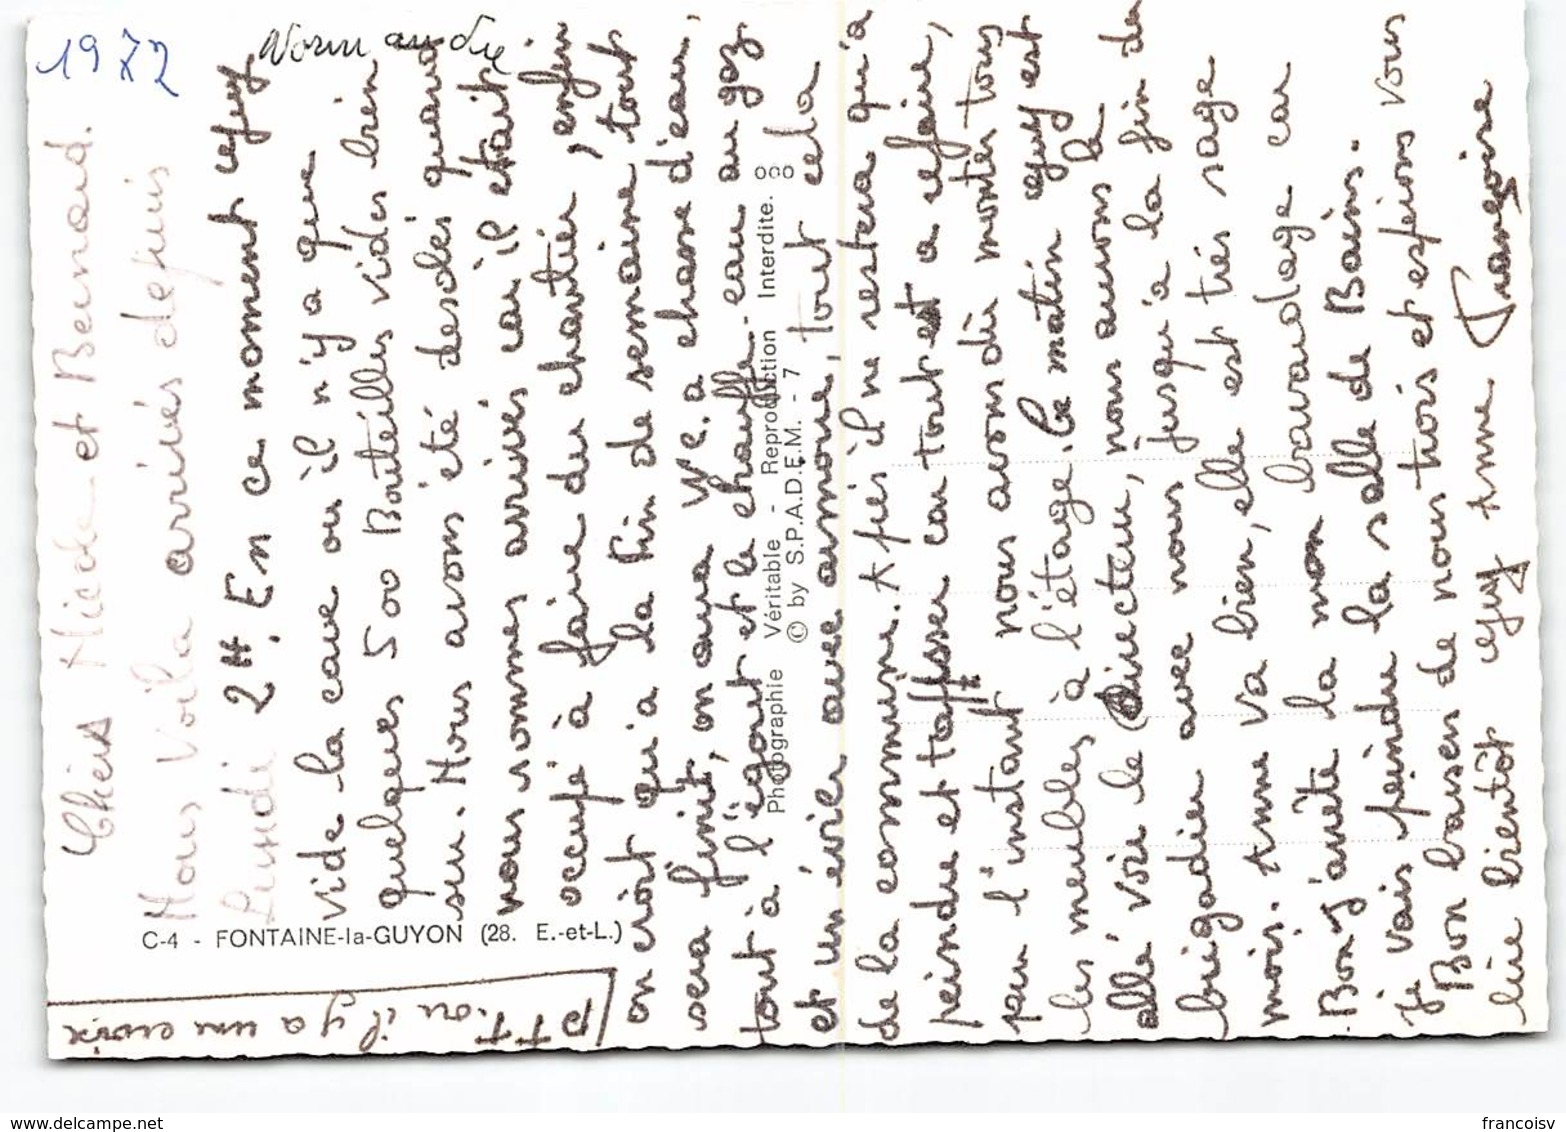 1972
Normandie
Chers Nicole et Bernard.
Nous Voila arrivés depuis
Lundi 24. En ce moment Guy
vide la cave ou il n'y a que
quelques 500 Bouteilles vides bien
su. Nous avons été desolés quand
nous sommes arrivés car il était
occupé à faire du chantier, enfin
on croit qu'a la fin de semaine tout
sera finit, on aura Wc. a chasse d'eau,
tout à l'égout et le chauffe-eau au gaz
et un évier avec armoire, tout cela
de la commune. Après il ne restera qu'à
peindre et tapisser car tout est a refaire,
pour l'instant nous avons dû monter tous
les meubles à l'étage. Ce matin Guy est
allé voir le Directeur, nous aurons la
brigadier avec nous jusqu'à la fin du
mois. Anne va bien, elle est très sage
Bon j'arrête la mon bavardage car
je vais peindre la salle de Bains.
Bon baiser de nous trois et espérons vous
lire bientôt Guy Anne Françoise
PTT. ou il y a une croix
C-4 - FONTAINE-la-GUYON (28. E.-et-L.)
Photographie Véritable - Reproduction Interdite.
© by S.P.A.D.E.M. - 7
francoisv